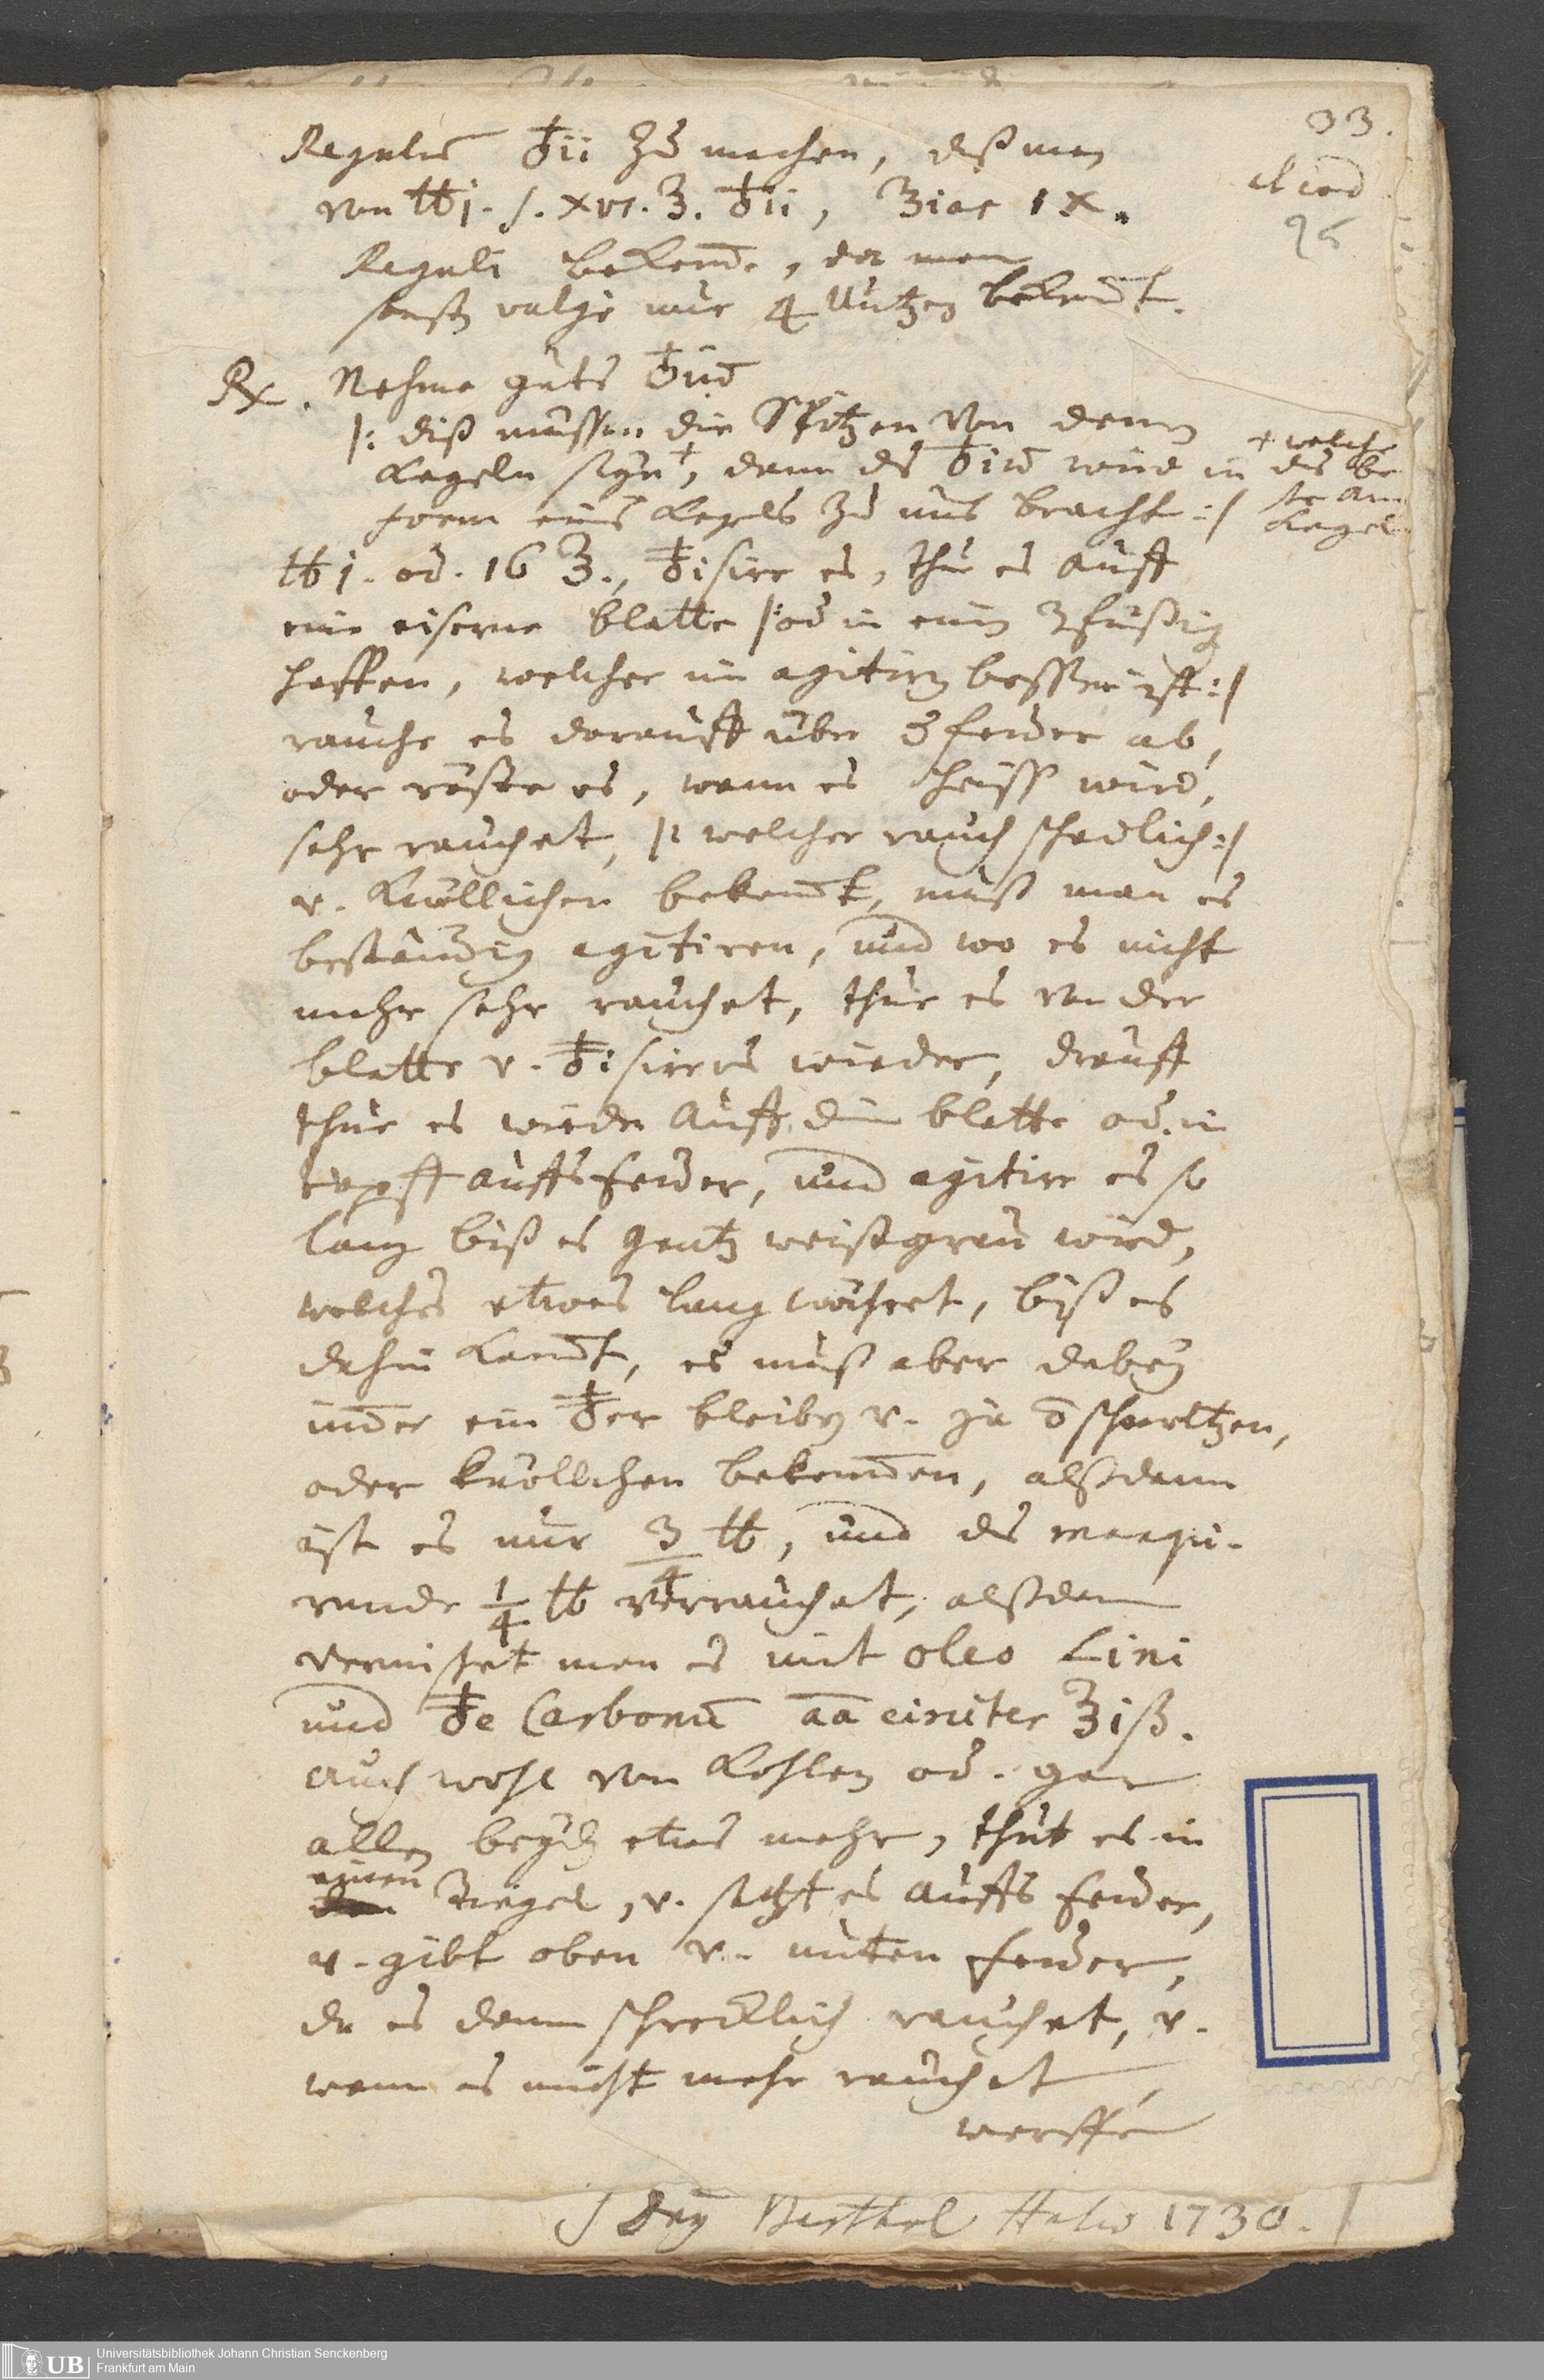 33.
Regulus ♁ii Zu machen, daß man
von ℔j. s. xvi. ℥. ♁ii, ℥ias IX.
Reguli bekomme, da man
sonst vulgo nur 4 Untzen bekomt.
Rx. Nehme guts ♁iū
/: diß müssen die Spitzen von denen
Kegeln seyn +, denn das ♁iū wird in
+ welche
das be
ste am
Kegel
form eines Kegels zu uns bracht :/
℔j. od. 16 ℥., ♁isire es, thue es auff
eine eiserne blatte /: od in einen 3füßigen
haffen, welcher im agitiren besser ist :/
rauche es darauff über feuer ab,
oder röste es, wenn es heiß wird,
sehr rauchet, /: welcher rauch schädlich :/
v. knöllichen bekomt, muß man es
beständig agitiren, und wo es nicht
mehr sehr rauchet, thue es von der
blatte v. ♁isire es wieder, drauff
thue es wieder auff die blatte od. in
topff auffs feuer, und agitire es so
lang biß es gantz weißgrau wird,
welches etwas lang währet, biß es
dahin komt, es muß aber dabey
immer ein ♁er bleiben v. ja schmeltzen,
oder knöllchen bekommen, alßdann
ist es nur 3/4 ℔, und das
1/4 ℔ verrauchet, alßdann
vermischet man es mit oleo Lini
und ♁e Carbonū aā ciriter ℥iß.
auch wohl von Kohlen od. gar
allen beyden etwas mehr, thut es in
einen Tiegel, v. setzt es auffs feuer,
v. gibt oben v. unten feuer,
da es dann schrecklich rauchet, v.
wenn es nicht mehr rauchet,
werffe
Berthel 1730.
UB Universitätsbibliothek Johann Christian Senckenberg
Frankfurt am Main